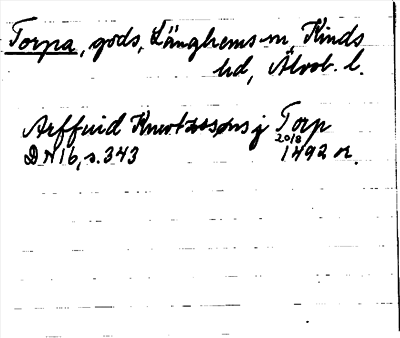 Torpa, gods, Länghems sn, Kinds
hd, Älvsb. l.
Arffuid Knwtssøns j Torp
DN 16, s. 343 20/8 1492 or.